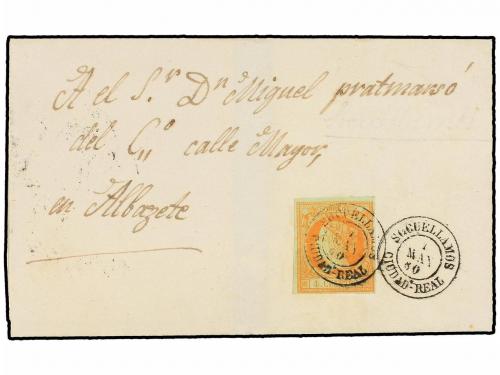 A el S.r D.n Miguel pratmarsó
del C,,o calle Mayor,
en Albazete
SOCUELLAMOS
MAY
60
CIUDAD-REAL
SOCUELLAMOS
1
MAY
60
CIUDAD-REAL